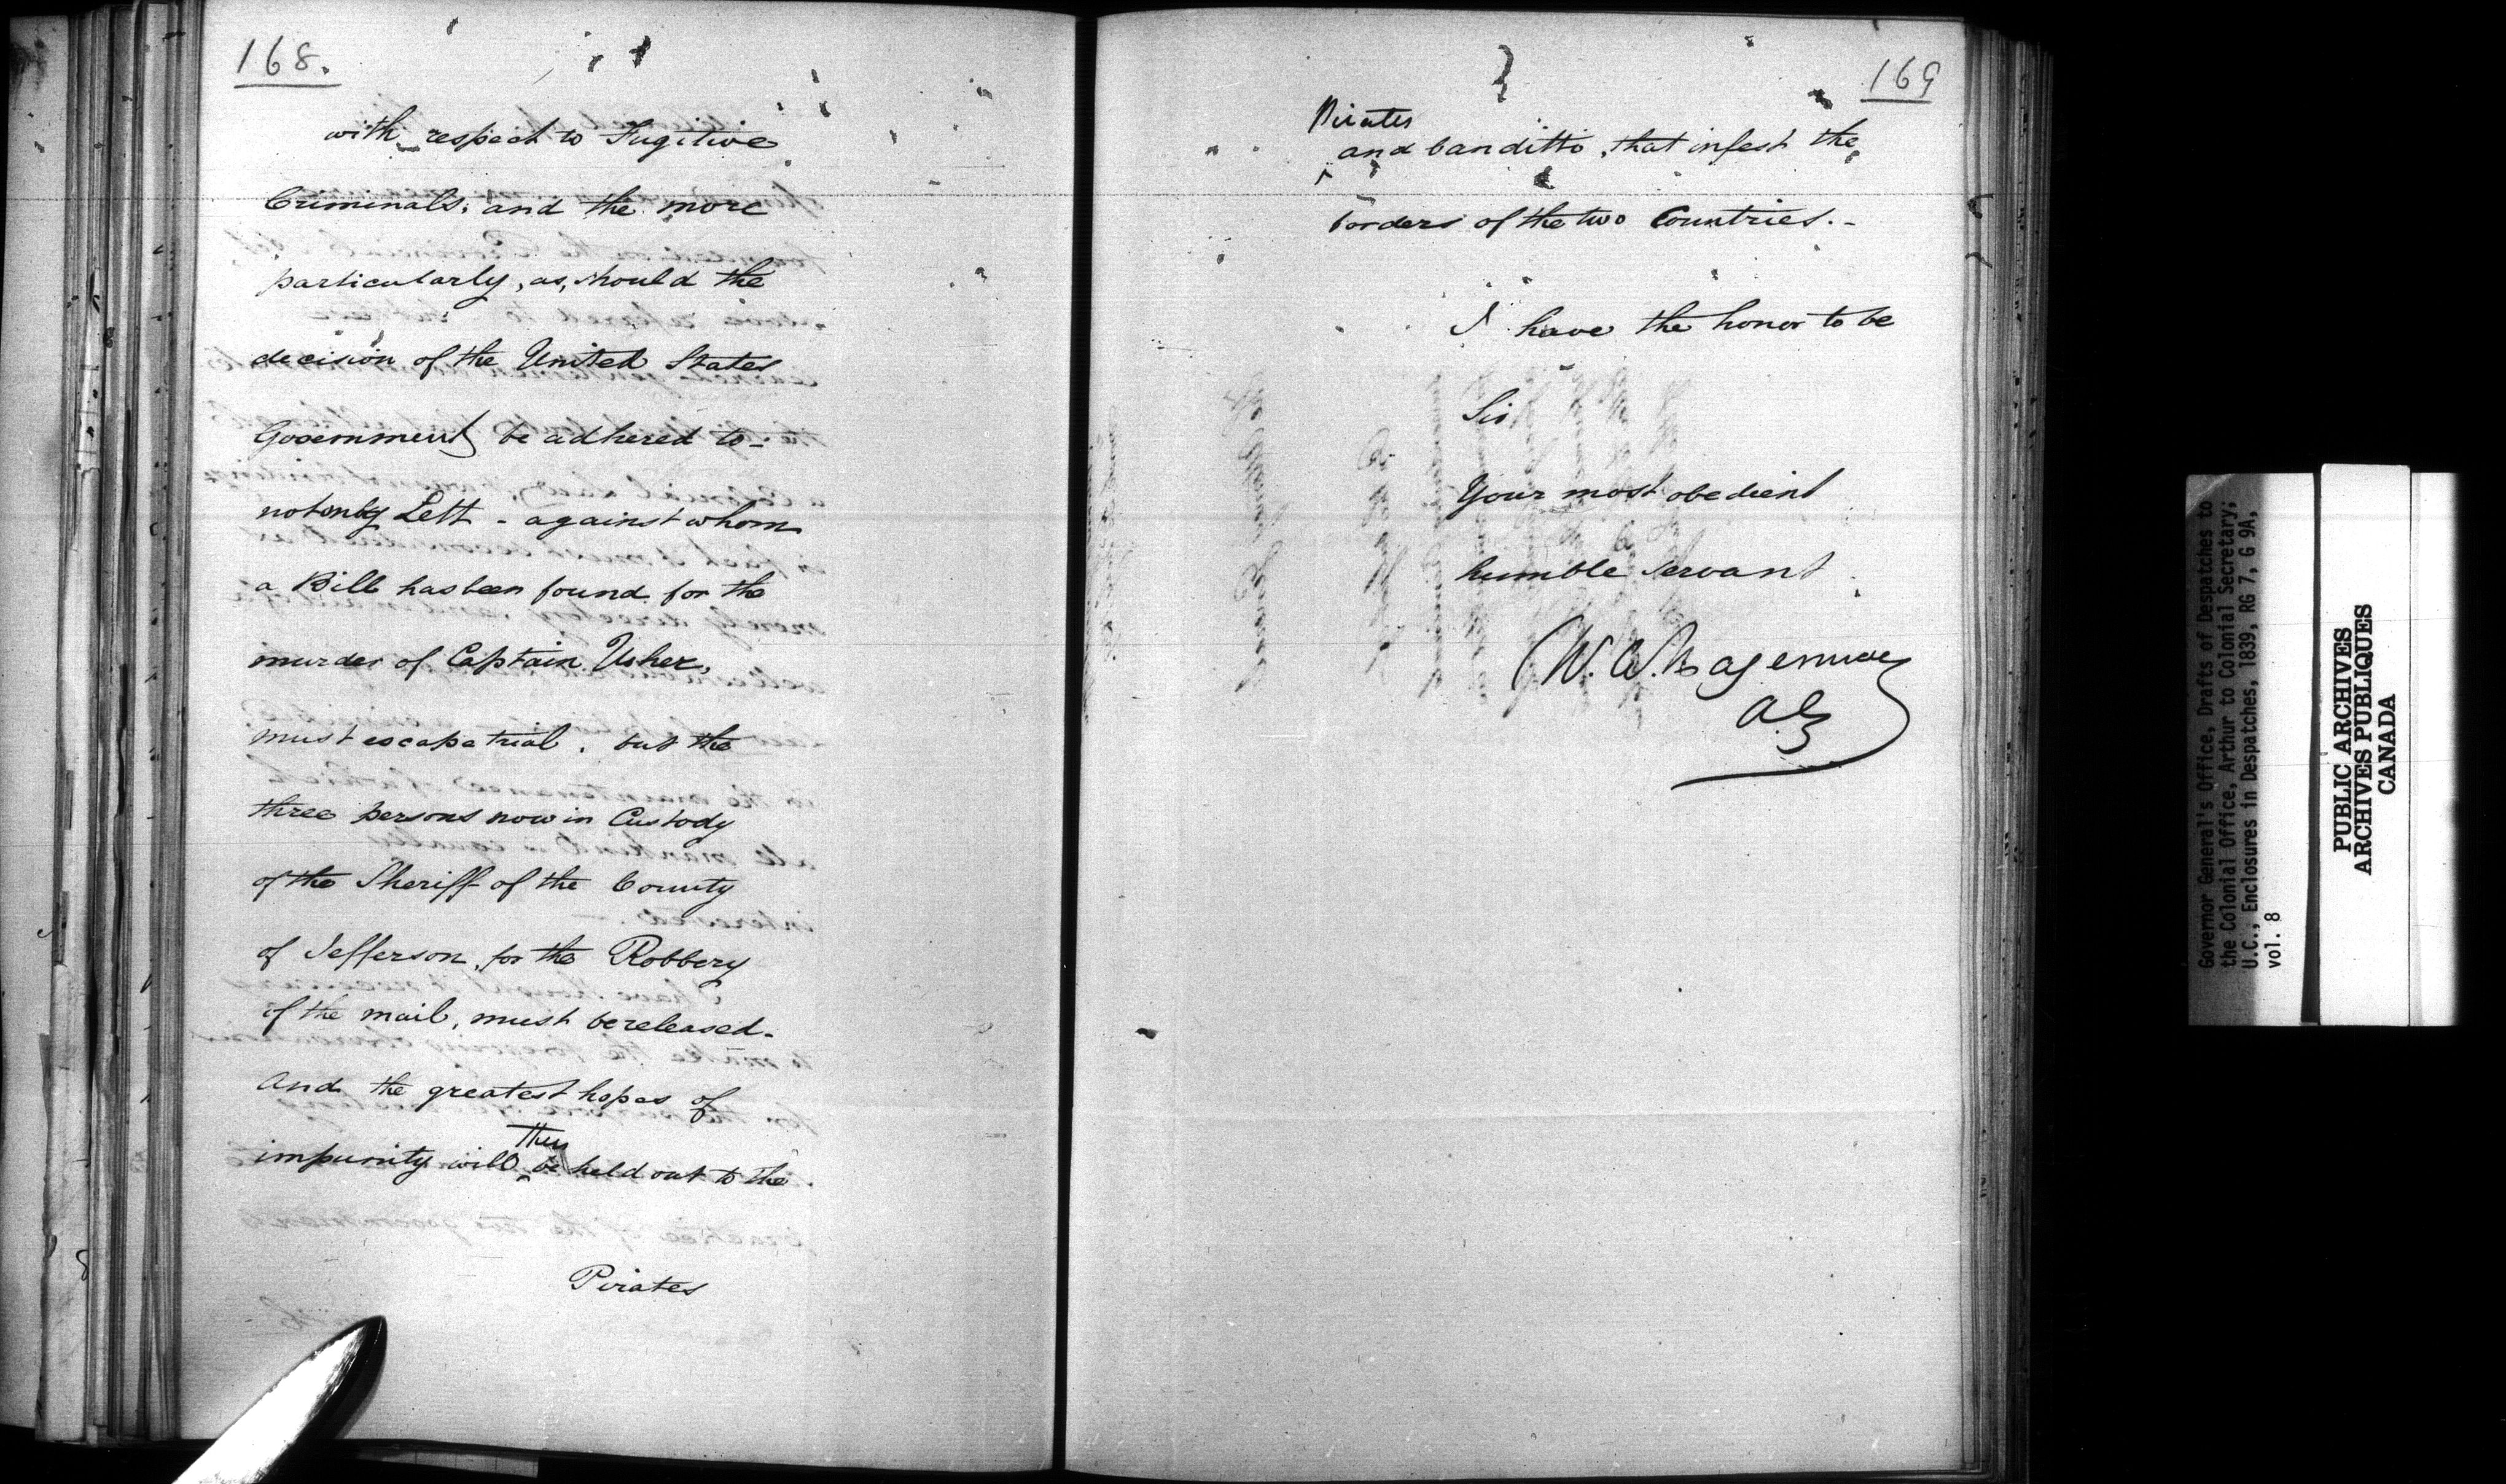 168.
with respect to Fugitive
Criminals; and the more
particularly, as, should the
decision of the United States
Government be adhered to -
not only Lett - against whom
a Bill has been found for the
murder of Captain Usher,
must escape trial, but the
three persons now in Custody
of the Sheriff of the County
of Jefferson, for the Robbery
of the mail, must be released -
And the greatest hopes of
Thus
impunity will be held out to the
Pirates
169
Pirates
and banditti, that infest the
borders of the two Countries. -
I have the honor to be
Sir
Your most obedient
humble Servant
W. A. Hagerman
A.G
Governor General's Office, Drafts of Despatches to
the Colonial Office, Arthur to Colonial Secretary;
U.C., Enclosures in Despatches, 1839, RG 7, G 9A,
vol. 8
PUBLIC ARCHIVES
ARCHIVES PUBLIQUES
CANADA